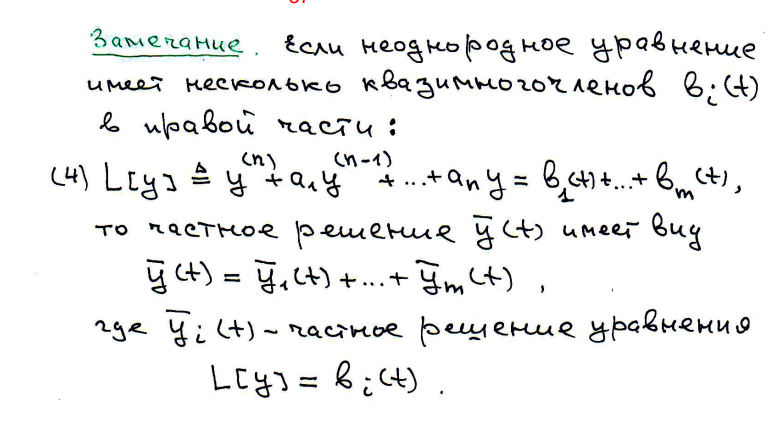 Замечание. Если неоднородное уравнение
имеет несколько квазимногочленов bᵢ(t)
в правой части:
(4) L[y] ≜ y⁽ⁿ⁾ + a₁y⁽ⁿ⁻¹⁾ + ... + aₙy = b₁(t) + ... + bₘ(t),
то частное решение ȳ(t) имеет вид
ȳ(t) = ȳ₁(t) + ... + ȳₘ(t) ,
где ȳᵢ(t) – частное решение уравнения
L[y] = bᵢ(t) .